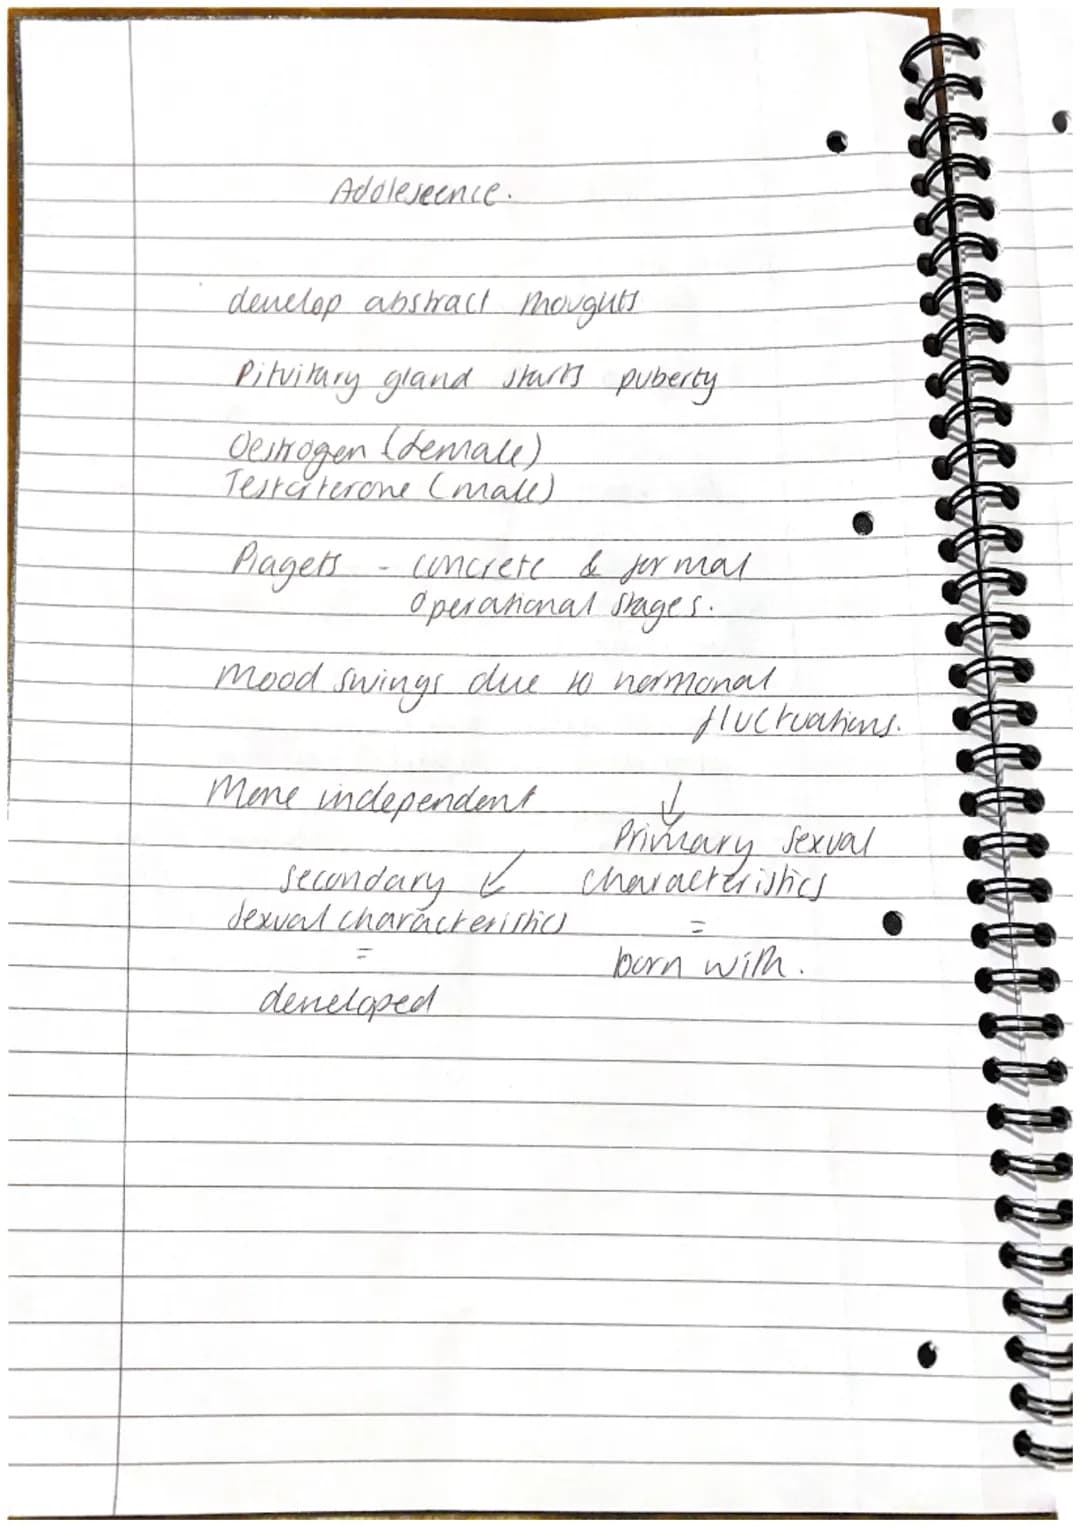 Adolescence.
develop abstract thoughts
Pituitary gland starts puberty
Oestrogen (female)
Testosterone (male)
Piagets - concrete & formal
operational stages.
Mood swings due to hormonal
fluctuations.
More independent
↓
Primary sexual
characteristics
=
born with.
↙
secondary
sexual characteristics
=
developed